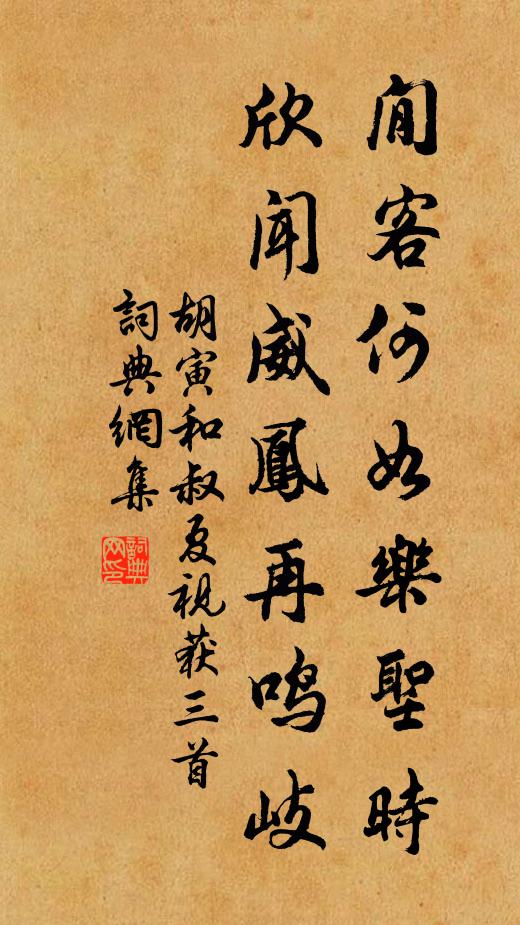 閒客何如樂聖時
欣聞威鳳再鳴岐
胡寅和叔夏視获三首
詞典網集
詞典
网印